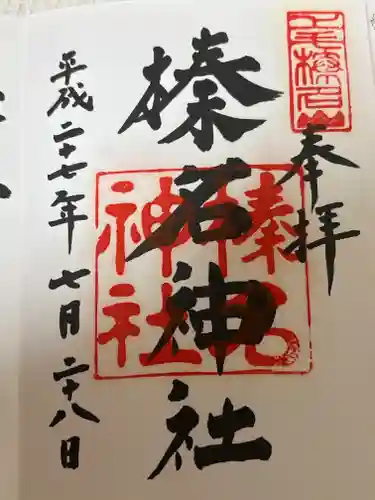 奉拝
上毛榛名山
榛名神社
榛名神社
平成二十七年七月二十八日